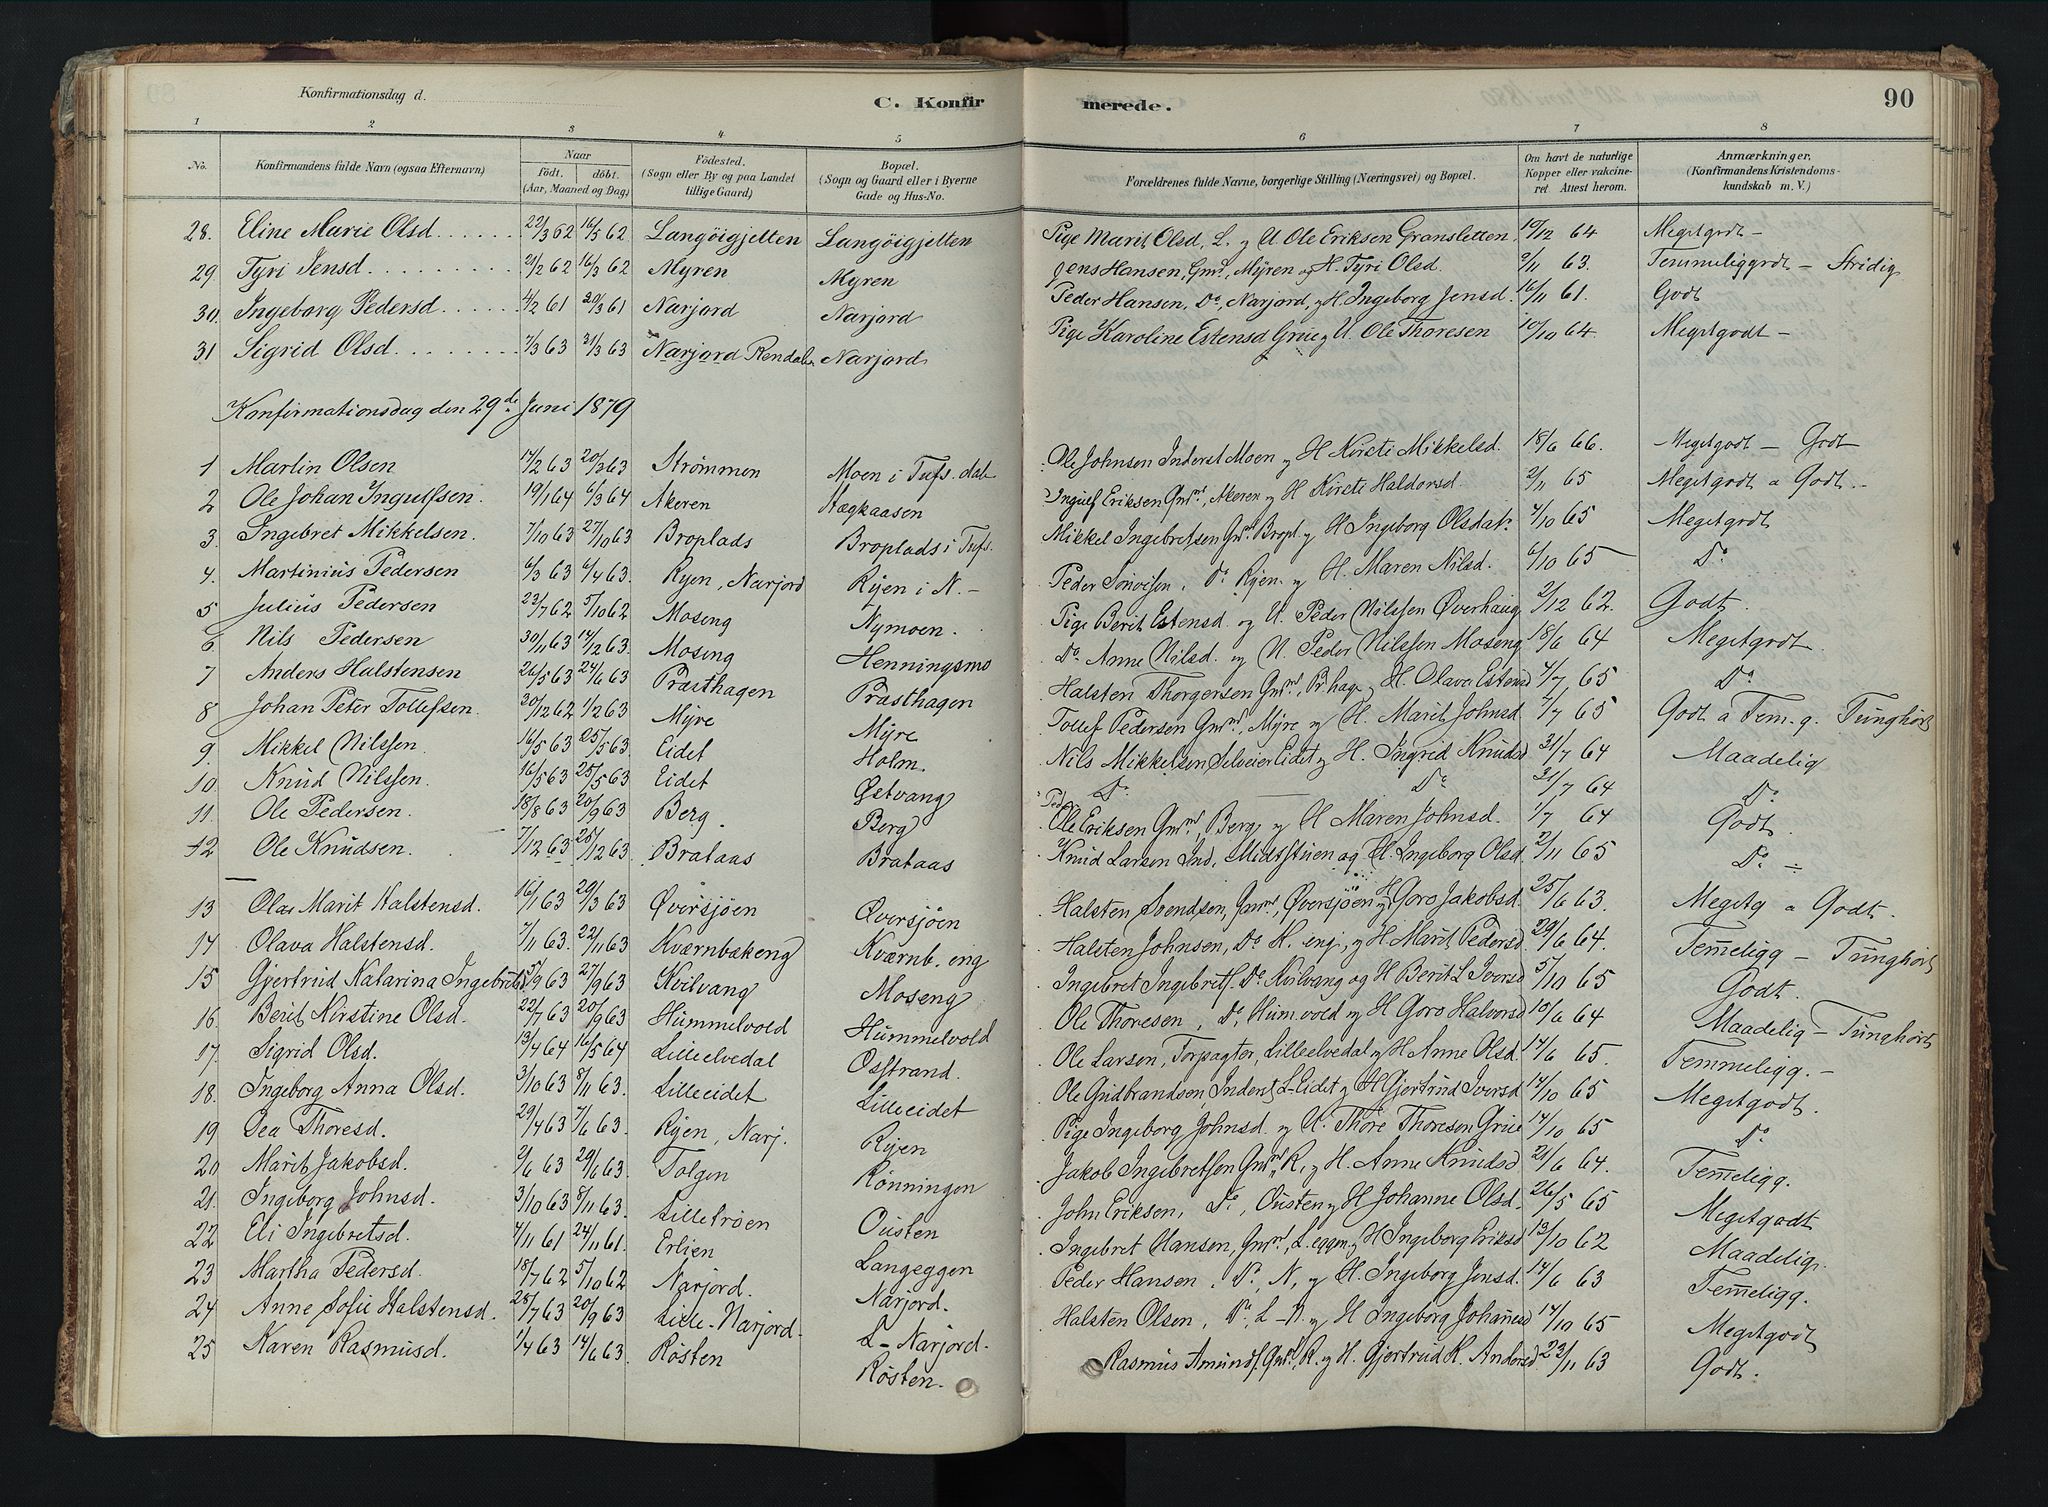 Konfirmationsdag d.
C. Konfirmerede.
90
1 2 3 4 5 6 7 8
No. Konfirmandens fulde Navn (ogsaa Efternavn) Naar født. døbt. (Aar, Maaned og Dag) Fødested. (Sogn eller By og paa Landet tillige Gaard) Bopæl. (Sogn og Gaard eller i Byerne Gade og Hus-No. Forældrenes fulde Navne, borgerlige Stilling (Næringsvei) og Bopæl. Om havt de naturlige Kopper eller vakcineret. Attest herom. Anmærkninger. (Konfirmandens Kristendomskundskab m. V.)
28. Eline Marie Olsd. 22/3 62 16/5 62 Langöigjelten Langöigjelten Pige Marit Olsd, L. og U. Ole Eriksen Gransletten 10/12 64 Megetgodt -
29. Tyri Jensd. 21/2 62 16/3 62 Myren Myren Jens Hansen, Gmd, Myren og H. Tyri Olsd. 2/11 63. Temmeliggodt - Stridig
30. Ingeborg Pedersd. 4/2 61 20/3 61 Narjord Narjord Peder Hansen, Do, Narjord, og H. Ingeborg Jensd. 16/11 61. Godt
31 Sigrid Olsd. 7/3 63 31/3 63 Narjord Rendalen Narjord Pige Karoline Estensd Grue og U. Ole Thoresen 10/10 64. Megetgodt -
Konfirmationsdag den 29de Juni 1879
1 Martin Olsen 17/2 63 20/3 63 Strømmen Moen i Tufs.dal Ole Johnsen Inderst Moen og H Kirsti Mikkelsd. 18/6 66. Megetgodt - Godt
2 Ole Johan Ingulfsen. 19/1 64 6/3 64 Akeren Hægkaasen Ingulf Eriksen Gmd, Akeren og H Kirsti Haldorsd. 2/11 65 Megetgodt a Godt. -
3. Ingebret Mikkelsen. 7/10 63 27/10 63 Broplads Broplads i Tufs. Mikkel Ingebretsen Gmd Bropl. og H Ingeborg Olsdatr. 4/10 65 Megetgodt
4. Martinius Pedersen 6/3 63 6/4 63. Ryen, Narjord Ryen i N. - Peder Simensen, Do Ryen og H. Maren Nilsd. 6/10 65 Do
5 Julius Pedersen 23/7 62 5/10 62 Moseng Nymoen. Pige Berit Estensd. og U. Peder Nilssen Øverhaug 2/12 62. Godt.
6 Nils Pedersen 30/11 63 14/12 63. Moseng Henningsmo Do Anne Nilsd. og U. Peder Nilssen Moseng 18/6 64 Megetgodt.
7 Anders Halstensen 26/5 63 24/6 63 Præsthagen Præsthagen Halsten Thorgersen Gmd, Pr.hage og H. Olava Estensd 4/7 65 Do
8 Johan Peter Tollefsen. 20/12 62 1/2 63 Myre Myre Tollef Pedersen Gmd, Myre og H. Marit Johnsd. 2/7 65 Godt a Tem. g. Tunghört
9. Mikkel Nilssen. 16/5 63 25/5 63 Eidet Holm. Nils Mikkelsen Selveier Eidet og H. Ingrid Knudsd 31/7 64 Maadelig
10. Knud Nilssen. 16/5 63 25/5 63 Eidet Østvang Do Do 31/7 64 Do
11. Ole Pedersen. 18/8 63 20/9 63 Berg. Berg Peder Ole Eriksen Gmd, Berg og H Maren Johnsd. 1/7 64 Godt.
12 Ole Knudsen. 7/12 63 25/12 63 Brataas Brataas Knud Larsen Ind. Midtstuen og H. Ingeborg Olsd. 2/11 65 Do -
13 Olas Marit Halstensd. 16/1 63 29/3 63 Øversjøen Øversjøen Halsten Svendsen, Gmd, Øversjøen og H Goro Jakobsd. 25/6 63. Megetg a Godt.
14 Olava Halstensd. 7/11 63. 22/11 63 Kværnbækeng Kværnb. eng Halsten Johnsen, Do K. eng, og H Marit Pedersd 29/6 64. Temeligg - Tunghört
15 Gjertrud Katarina Ingebretsd 5/9 63 27/9 63 Kvilvang Moseng Ingebret Ingebretf. Do Kvilvang og H Berit L Iversd 5/10 65 Godt.
16. Berit Kirstine Olsd. 22/7 63 20/9 63 Hummelvold Hummelvold Ole Thoresen, Do, Hum.vold og H Goro Halvorsd 10/6 64 Maadelig - Tunghört
17. Sigrid Olsd. 13/4 64 16/5 64 Lilleelvedal Osstrand. Ole Larsen, Torpagter, Lilleelvedal og H Anne Olsd. 14/6 65. Temmeligg. -
18. Ingeborg Anna Olsd. 3/10 63 8/11 63. Lilleeidet Lilleeidet Ole Gudbrandsen, Inderst L-Eidet og H Gjertrud Iversd 14/10 65 Megetgodt.
19 Pea Thoresd. 29/4 63 7/6 63. Ryen, Narj. Ryen Pige Ingeborg Johnsd. og U. Thore Thoresen Grue 14/10 65 Do
20 Marit Jakobsd. 2/6 63 29/6 63. Tolgen Rönningen Jakob Ingebretsen Gmd, R. og H. Anne Knudsd 21/6 64. Temeligg.
21. Ingeborg Johnsd. 3/10 63 8/11 63. Lilletröen Ousten John Eriksen, Do, Ousten og H Johanne Olsd. 26/5 65 Megetgodt
22 Eli Ingebretsd. 4/11 61 24/11 61. Erlien Langeggen Ingebret Hansen, Gmd, L.eggen og H Ingeborg Eriksd 13/10 62 Maadelig.
23 Martha Pedersd. 18/7 62 5/10 62 Narjord. Narjord. Peder Hansen, Do, N, og H. Ingeborg Jensd. 14/6 63 Temeligg.
24. Anne Sofie Halstensd. 28/7 63 20/9 63 Lille-Narjord. L-Narjord. Halsten Olsen, Do, L-N. og H Ingeborg Johansd 14/10 65 Megetgodt
25 Karen Rasmusd. 1/4 63 14/6 63. Røsten Røsten. Rasmus Amundf. Gmd, R. og H. Gjertrud K. Andersd. 23/11 63 Godt.